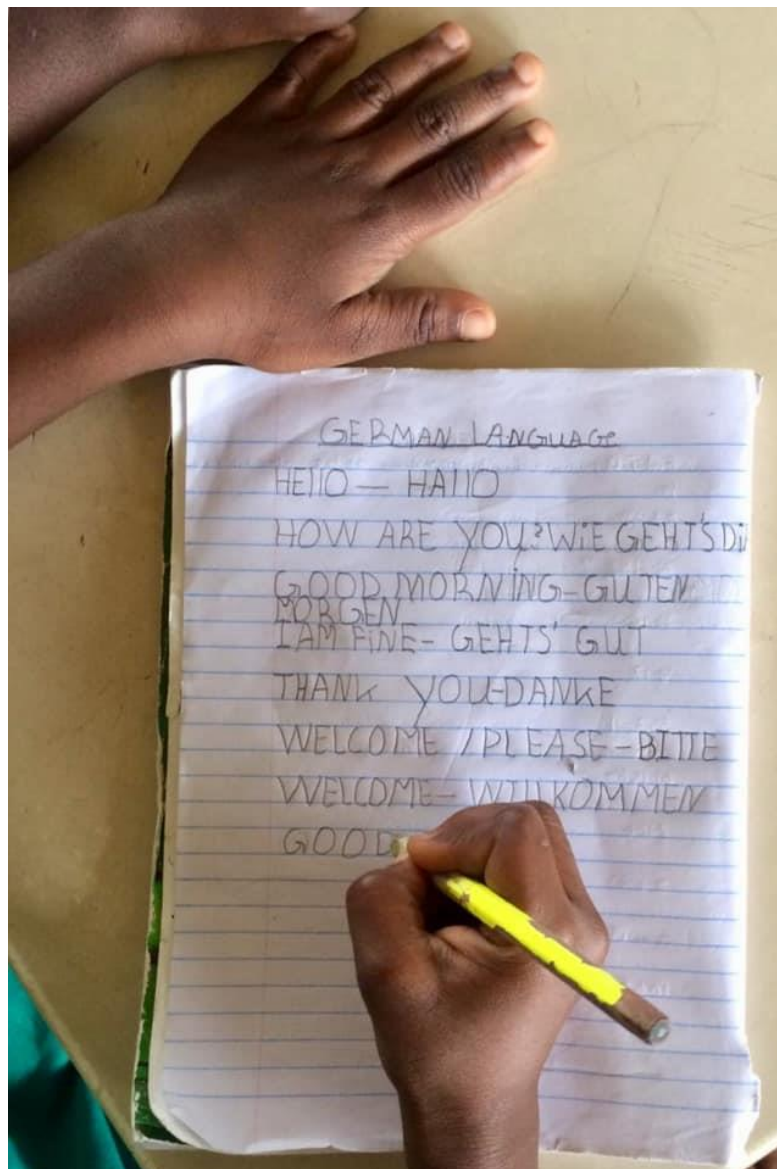 GERMAN LANGUAGE
HEllO — HAllO
HOW ARE YOU? WiE GEHT'S Di
GOOD MORNiNG - GUTEN
MORGEN
I AM FiNE - GEHTS' GUT
THANK YOU - DANKE
WELCOME / PLEASE - BITTE
WELCOME - WILLKOMMEN
GOOD